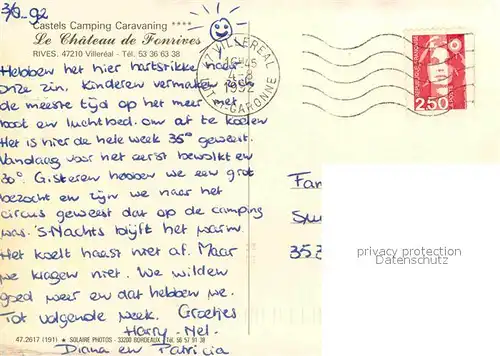 3/8-92
Castels Camping Caravaning ****
Le Château de Fonrives
RIVES, 47210 Villeréal - Tél. 53 36 63 38
47 VILLEREAL
16H45
4-8
1992
LOT-ET-GARONNE
REPUBLIQUE FRANÇAISE
2,50
LA POSTE
Hebben het hier hartstikke naar
onze zin, kinderen vermaken zich
de meeste tijd op het meer met
boot en luchtbed. om af te koelen
Het is hier de hele week 36° geweest.
Vandaag voor het eerst bewolkt en
30°. Gisteren hebben we een grot
bezocht en zijn we naar het
circus geweest dat op de camping
was. 'S-Nachts blijft het warm.
Het koelt haast niet af. Maar
we klagen niet. We wilden
goed weer en dat hebben we.
Tot volgende week. Groetjes
Harry - Nel.
Diana en Patricia
Fam
35
privacy protection
Datenschutz
47.2617 (191) ★ SOLAIRE PHOTOS - 33200 BORDEAUX - Tél. 56 57 91 38